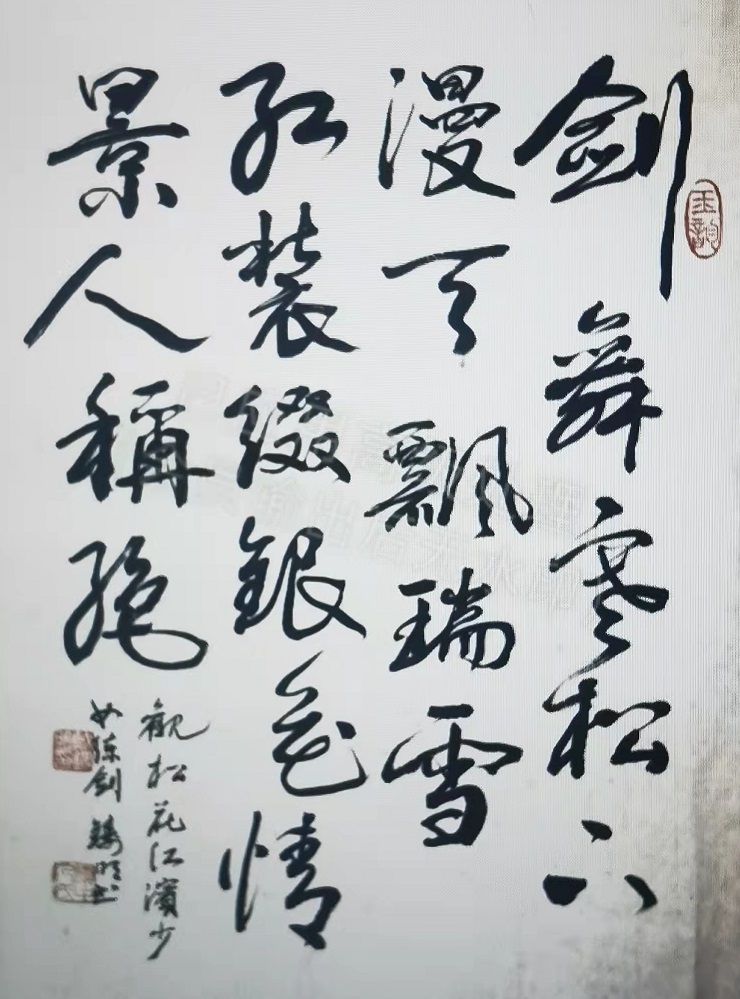 劍舞寒松下
漫天飄瑞雪
紅裝綴銀色情
景人稱絕
觀松花江濱少
女練劍
玉韵